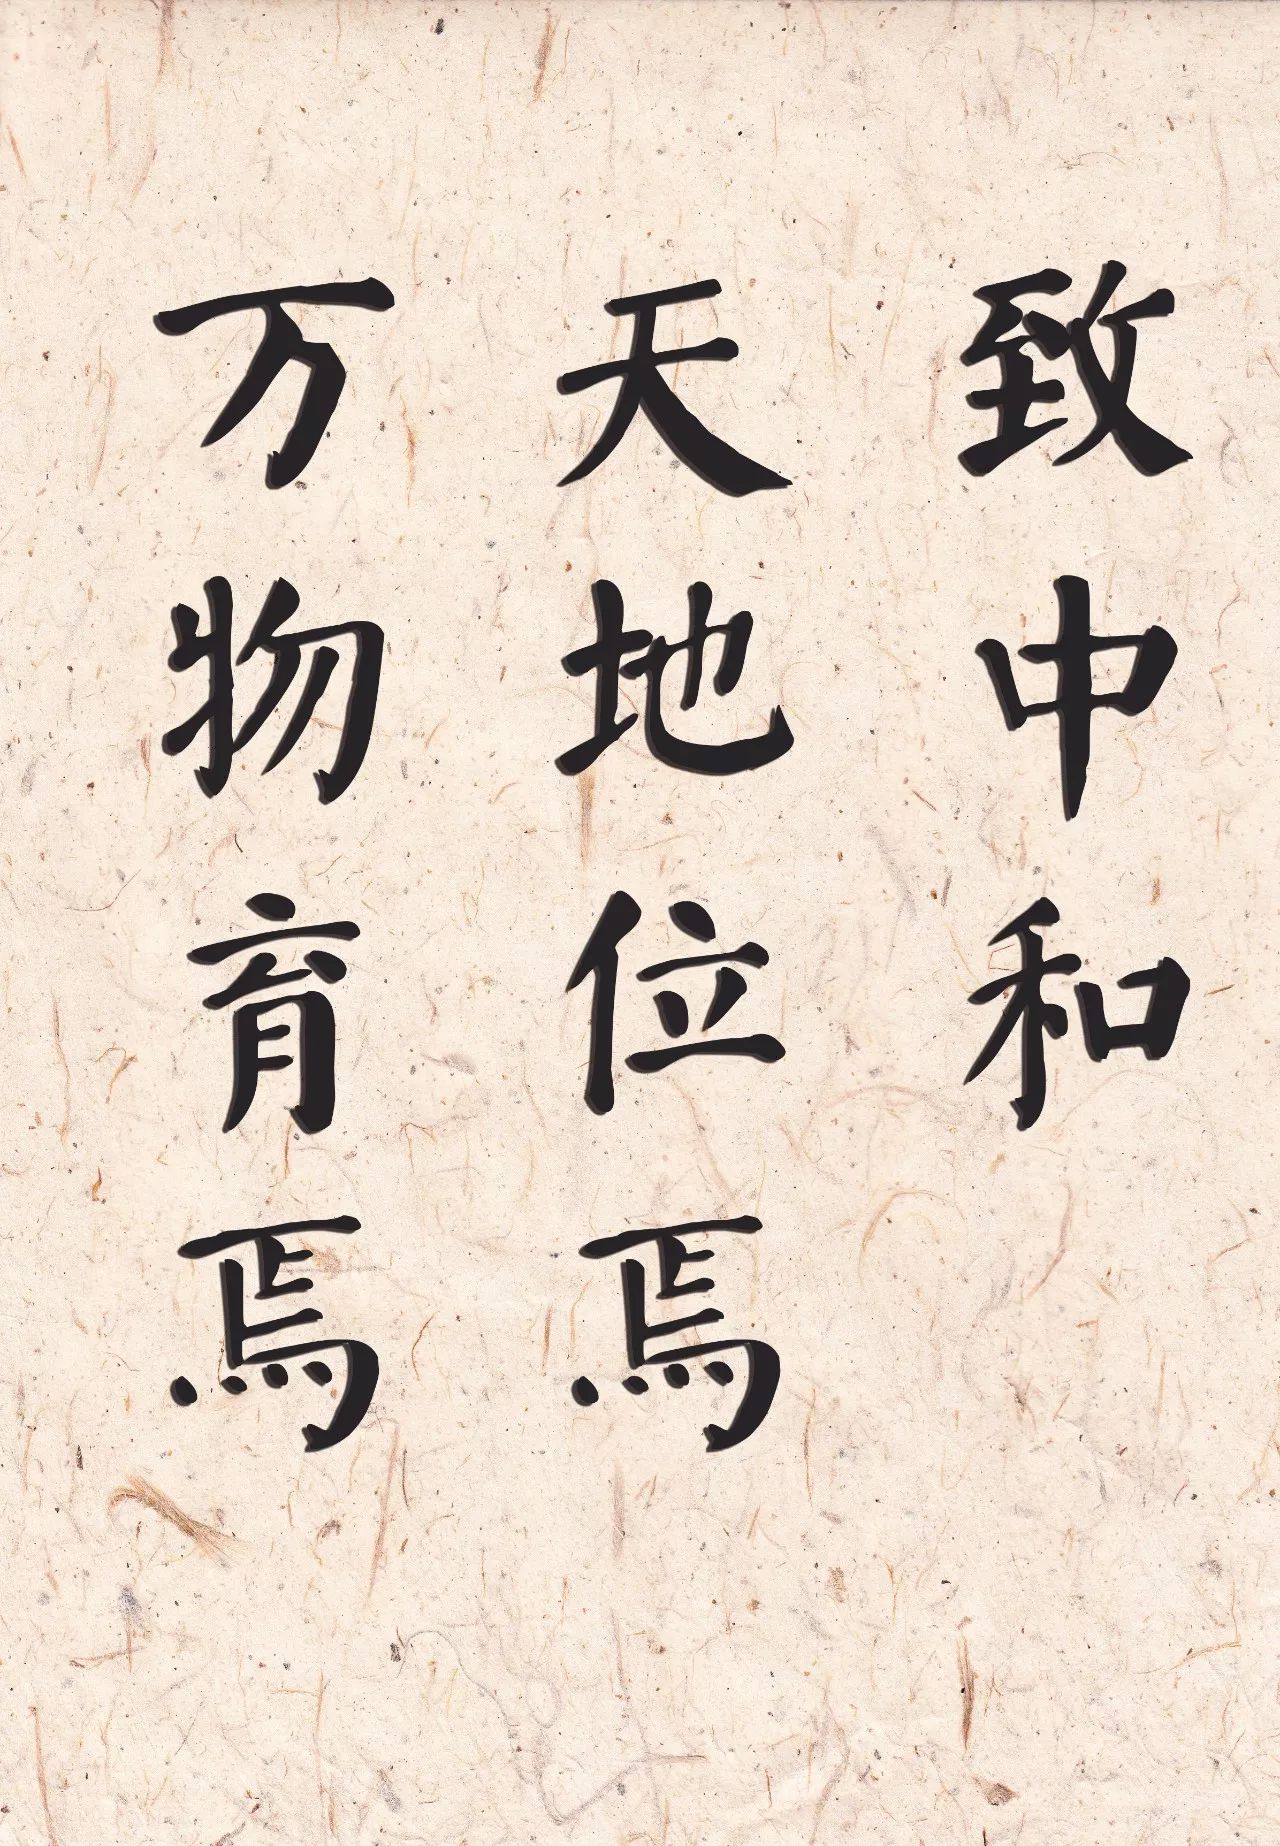 致中和
天地位焉
万物育焉